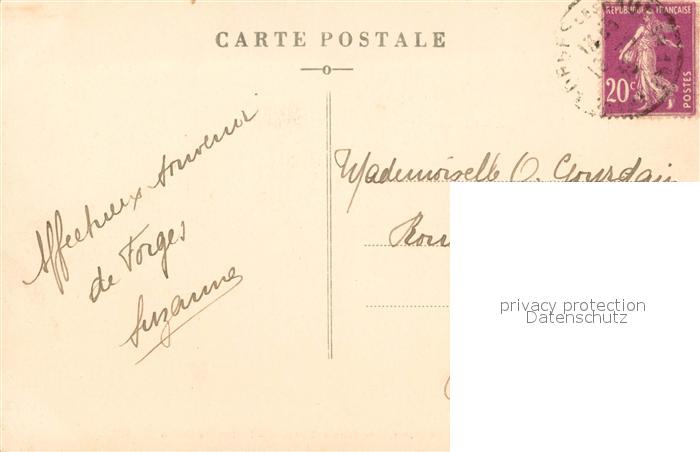 CARTE POSTALE
REPUBLIQUE FRANÇAISE
20c
POSTES
Affectueux souvenir
de Forges
Suzanne
Mademoiselle O. Gourdain
privacy protection
Datenschutz